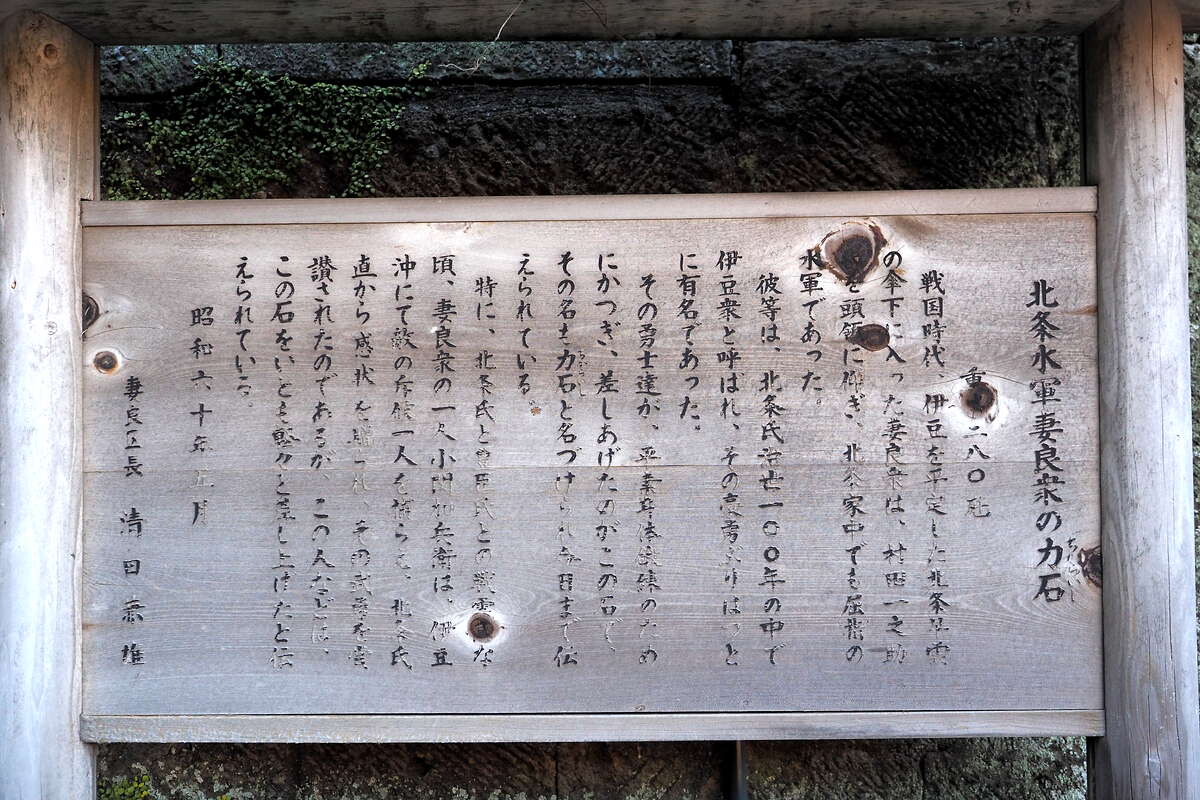 北条水軍妻良衆の力石
ちからいし
重 二八〇瓩
戦国時代、伊豆を平定した北条早雲
の傘下に入った妻良衆は、村田一之助
を頭領に仰ぎ、北条家中でも屈指の
水軍であった。
彼等は、北条氏治世一〇〇年の中で
伊豆衆と呼ばれ、その豪勇ぶりはつと
に有名であった。
その勇士達が、平素身体鍛練のため
にかつぎ、差しあげたのがこの石で、
その名も力石と名づけられ今日まで伝
えられている。
特に、北条氏と豊臣氏との戦雲急な
頃、妻良衆の一人小関加兵衛は、伊豆
沖にて敵の斥候一人を捕らえ、北条氏
直から感状を贈られ その武勇を賞
讃されたのであるが、この人などは、
この石をいとも軽々と差し上げたと伝
えられている。
昭和六十年五月
妻良区長 清田 雄